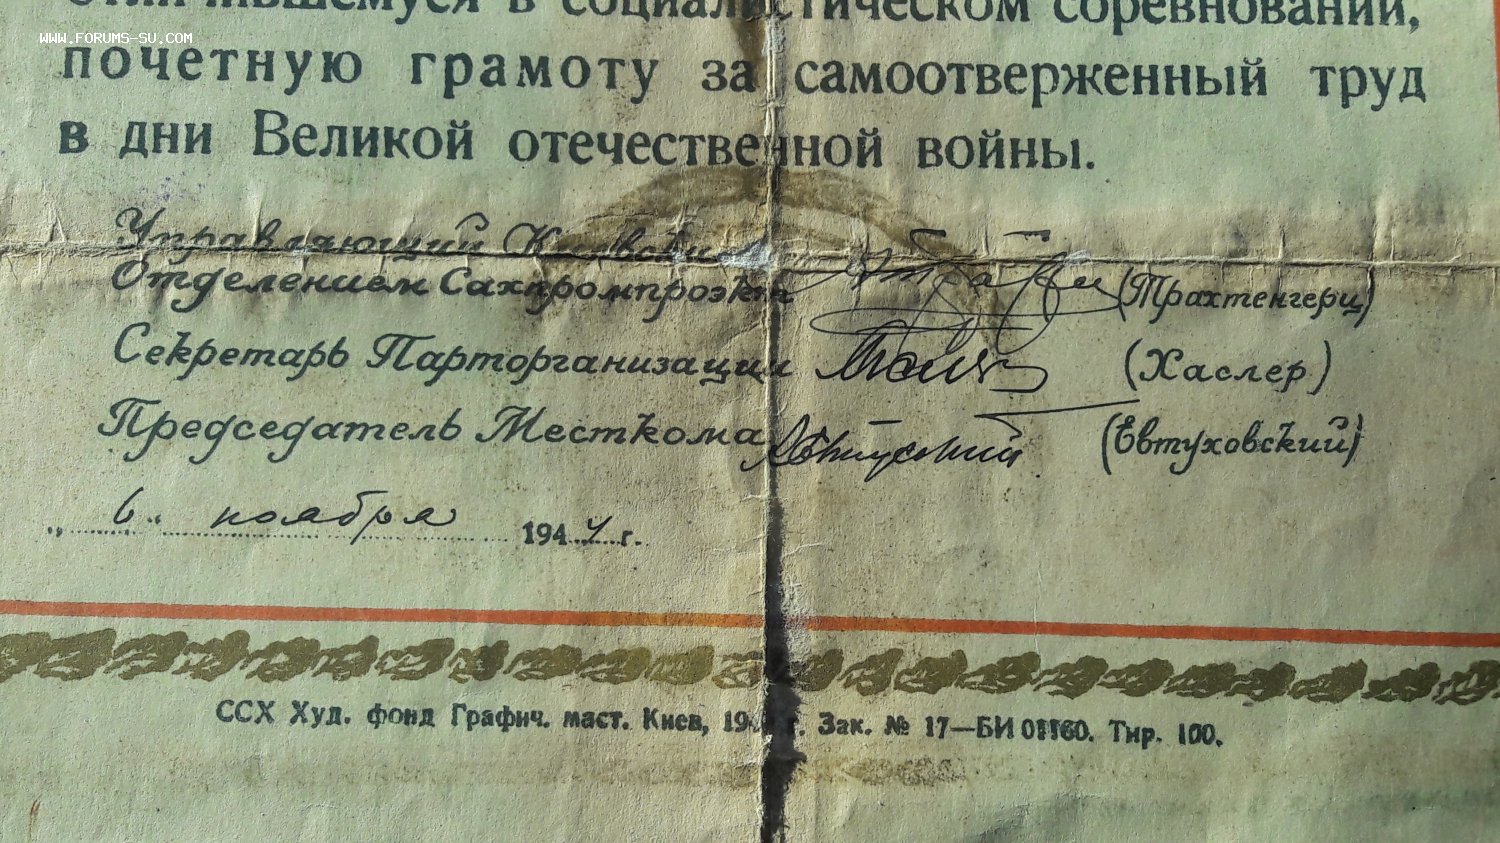 Отличившемуся в социалистическом соревновании,
WWW.FORUMS-SU.COM
почетную грамоту за самоотверженный труд
в дни Великой отечественной войны.
Управляющий Киевским
Отделением Сахпромпроэкта (Трахтенгерц)
Секретарь Парторганизации (Хаслер)
Председатель Месткома (Евтуховский)
„ 6 “ ноября 1944 г.
ССХ Худ. фонд Графич. маст. Киев, г. Зак. № 17—БИ 01160. Тир. 100.